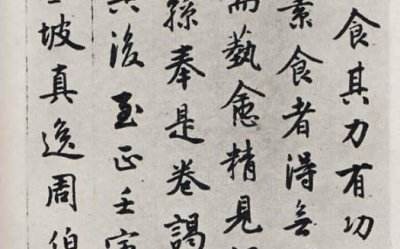 食其力有功
素食者得無
而藝愈精見
孫奉是卷謁
其後至正壬寅
坡真逸周伯